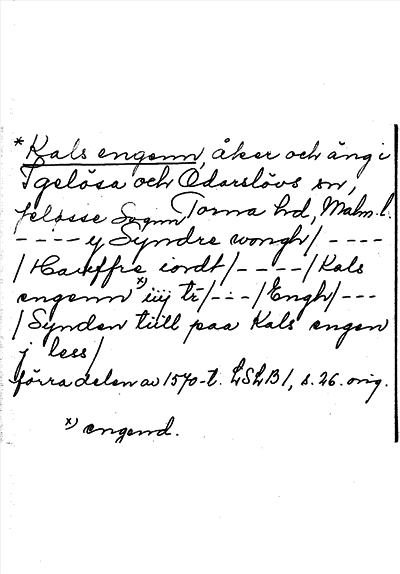 *Kals engenn, åker och äng i
Igelösa och Odarslövs sn,
Jeløsse Sognn Torna hd, Malm. l.
---- y Syndre wongh/ ----
/Hauffre iordt/----/Kals
engenn x) iiij tr/---/Engh/---
/Synden tiill paa Kals engen
j less/
förra delen av 1570-t. LSLB 1, s. 26. orig.
x) engend.